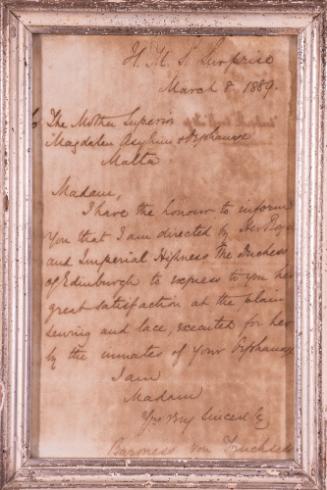 H. M. S. Surprise
March 8. 1889.
To The Mother Superior
Magdalen Asylum & Orphanage
Malta
Madame,
I have the honour to inform
you that I am directed by Her Royal
and Imperial Highness the Duchess
of Edinburgh to express to you her
great satisfaction at the plain
sewing and lace, executed for her
by the inmates of your Orphanage
I am
Madam
Yrs very sincerely
Baroness von